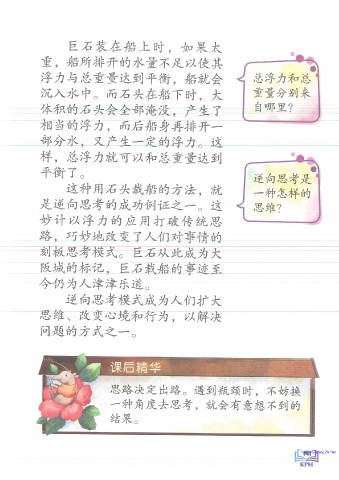 巨石装在船上时，如果太
重，船所排开的水量不足以使其
浮力与总重量达到平衡，船就会
沉入水中。而石头在船下时，大
体积的石头会全部淹没，产生了
相当的浮力，而后船身再排开一
部分水，又产生一定的浮力。这
样，总浮力就可以和总重量达到
平衡了。
这种用石头载船的方法，就
是逆向思考的成功例证之一。这
妙计以浮力的应用打破传统思
路，巧妙地改变了人们对事情的
刻板思考模式。巨石从此成为大
阪城的标记，巨石载船的事迹至
今仍为人津津乐道。
逆向思考模式成为人们扩大
思维、改变心境和行为，以解决
问题的方式之一。
总浮力和总
重量分别来
自哪里？
逆向思考是
一种怎样的
思维？
课后精华
思路决定出路。遇到瓶颈时，不妨换
一种角度去思考，就会有意想不到的
结果。
KPM